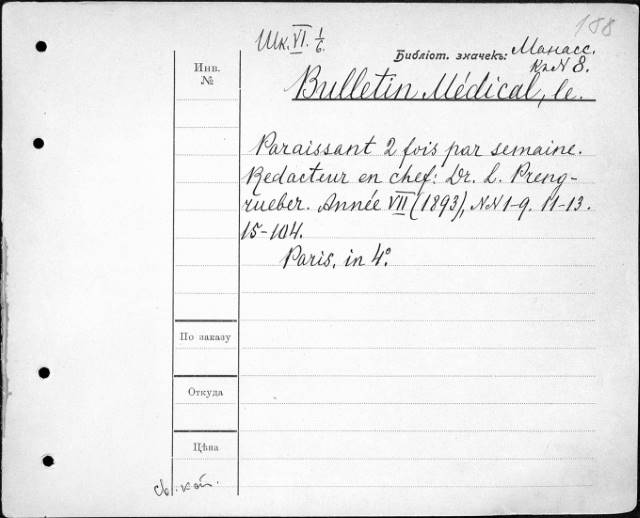 158
Шк. VI. 1/6.
Библіот. значекъ: Манасс.
Кн N 8.
Инв.
№
Bulletin Médical, le.
Paraissant 2 fois par semaine.
Redacteur en chef: Dr. L. Preng-
rueber. Année VII (1893), NN 1-9. 11-13.
15-104.
Paris, in 4°.
По заказу
Откуда
Цѣна